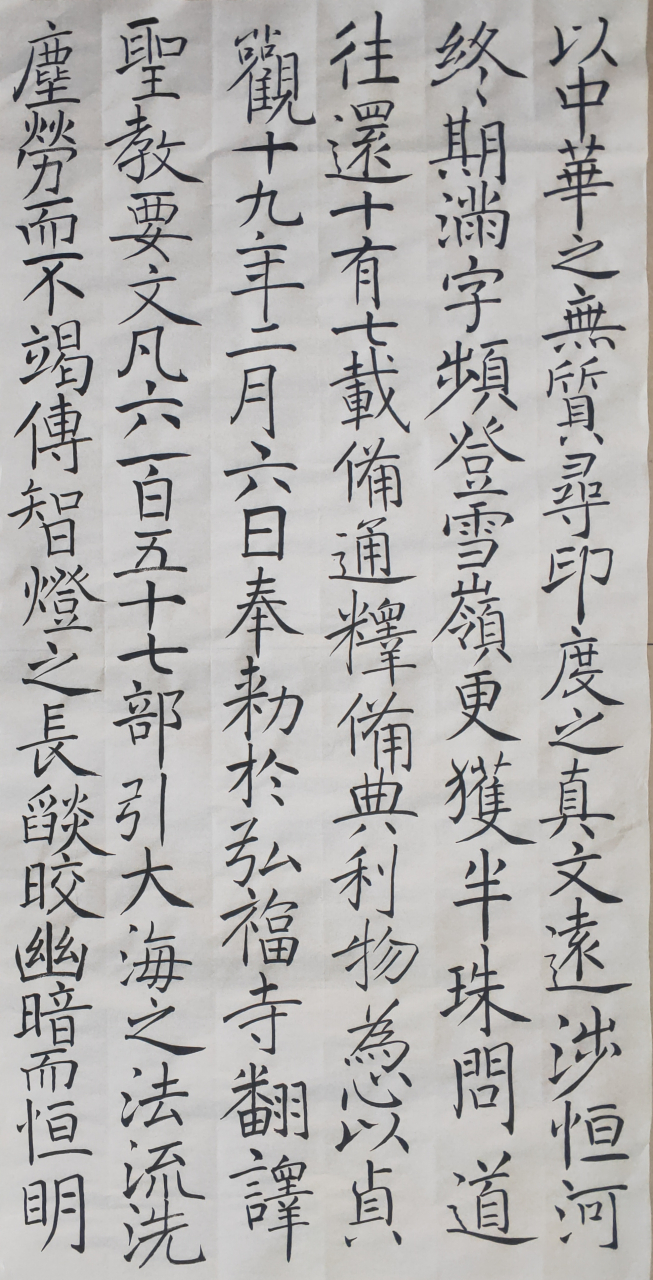 以中華之無質尋印度之真文遠涉恒河
終期滿字頻登雪嶺更獲半珠問道
往還十有七載備通釋備典利物為心以貞
觀十九年二月六日奉勅於弘福寺翻譯
聖教要文凡六百五十七部引大海之法流洗
塵勞而不竭傳智燈之長燄皎幽暗而恒明